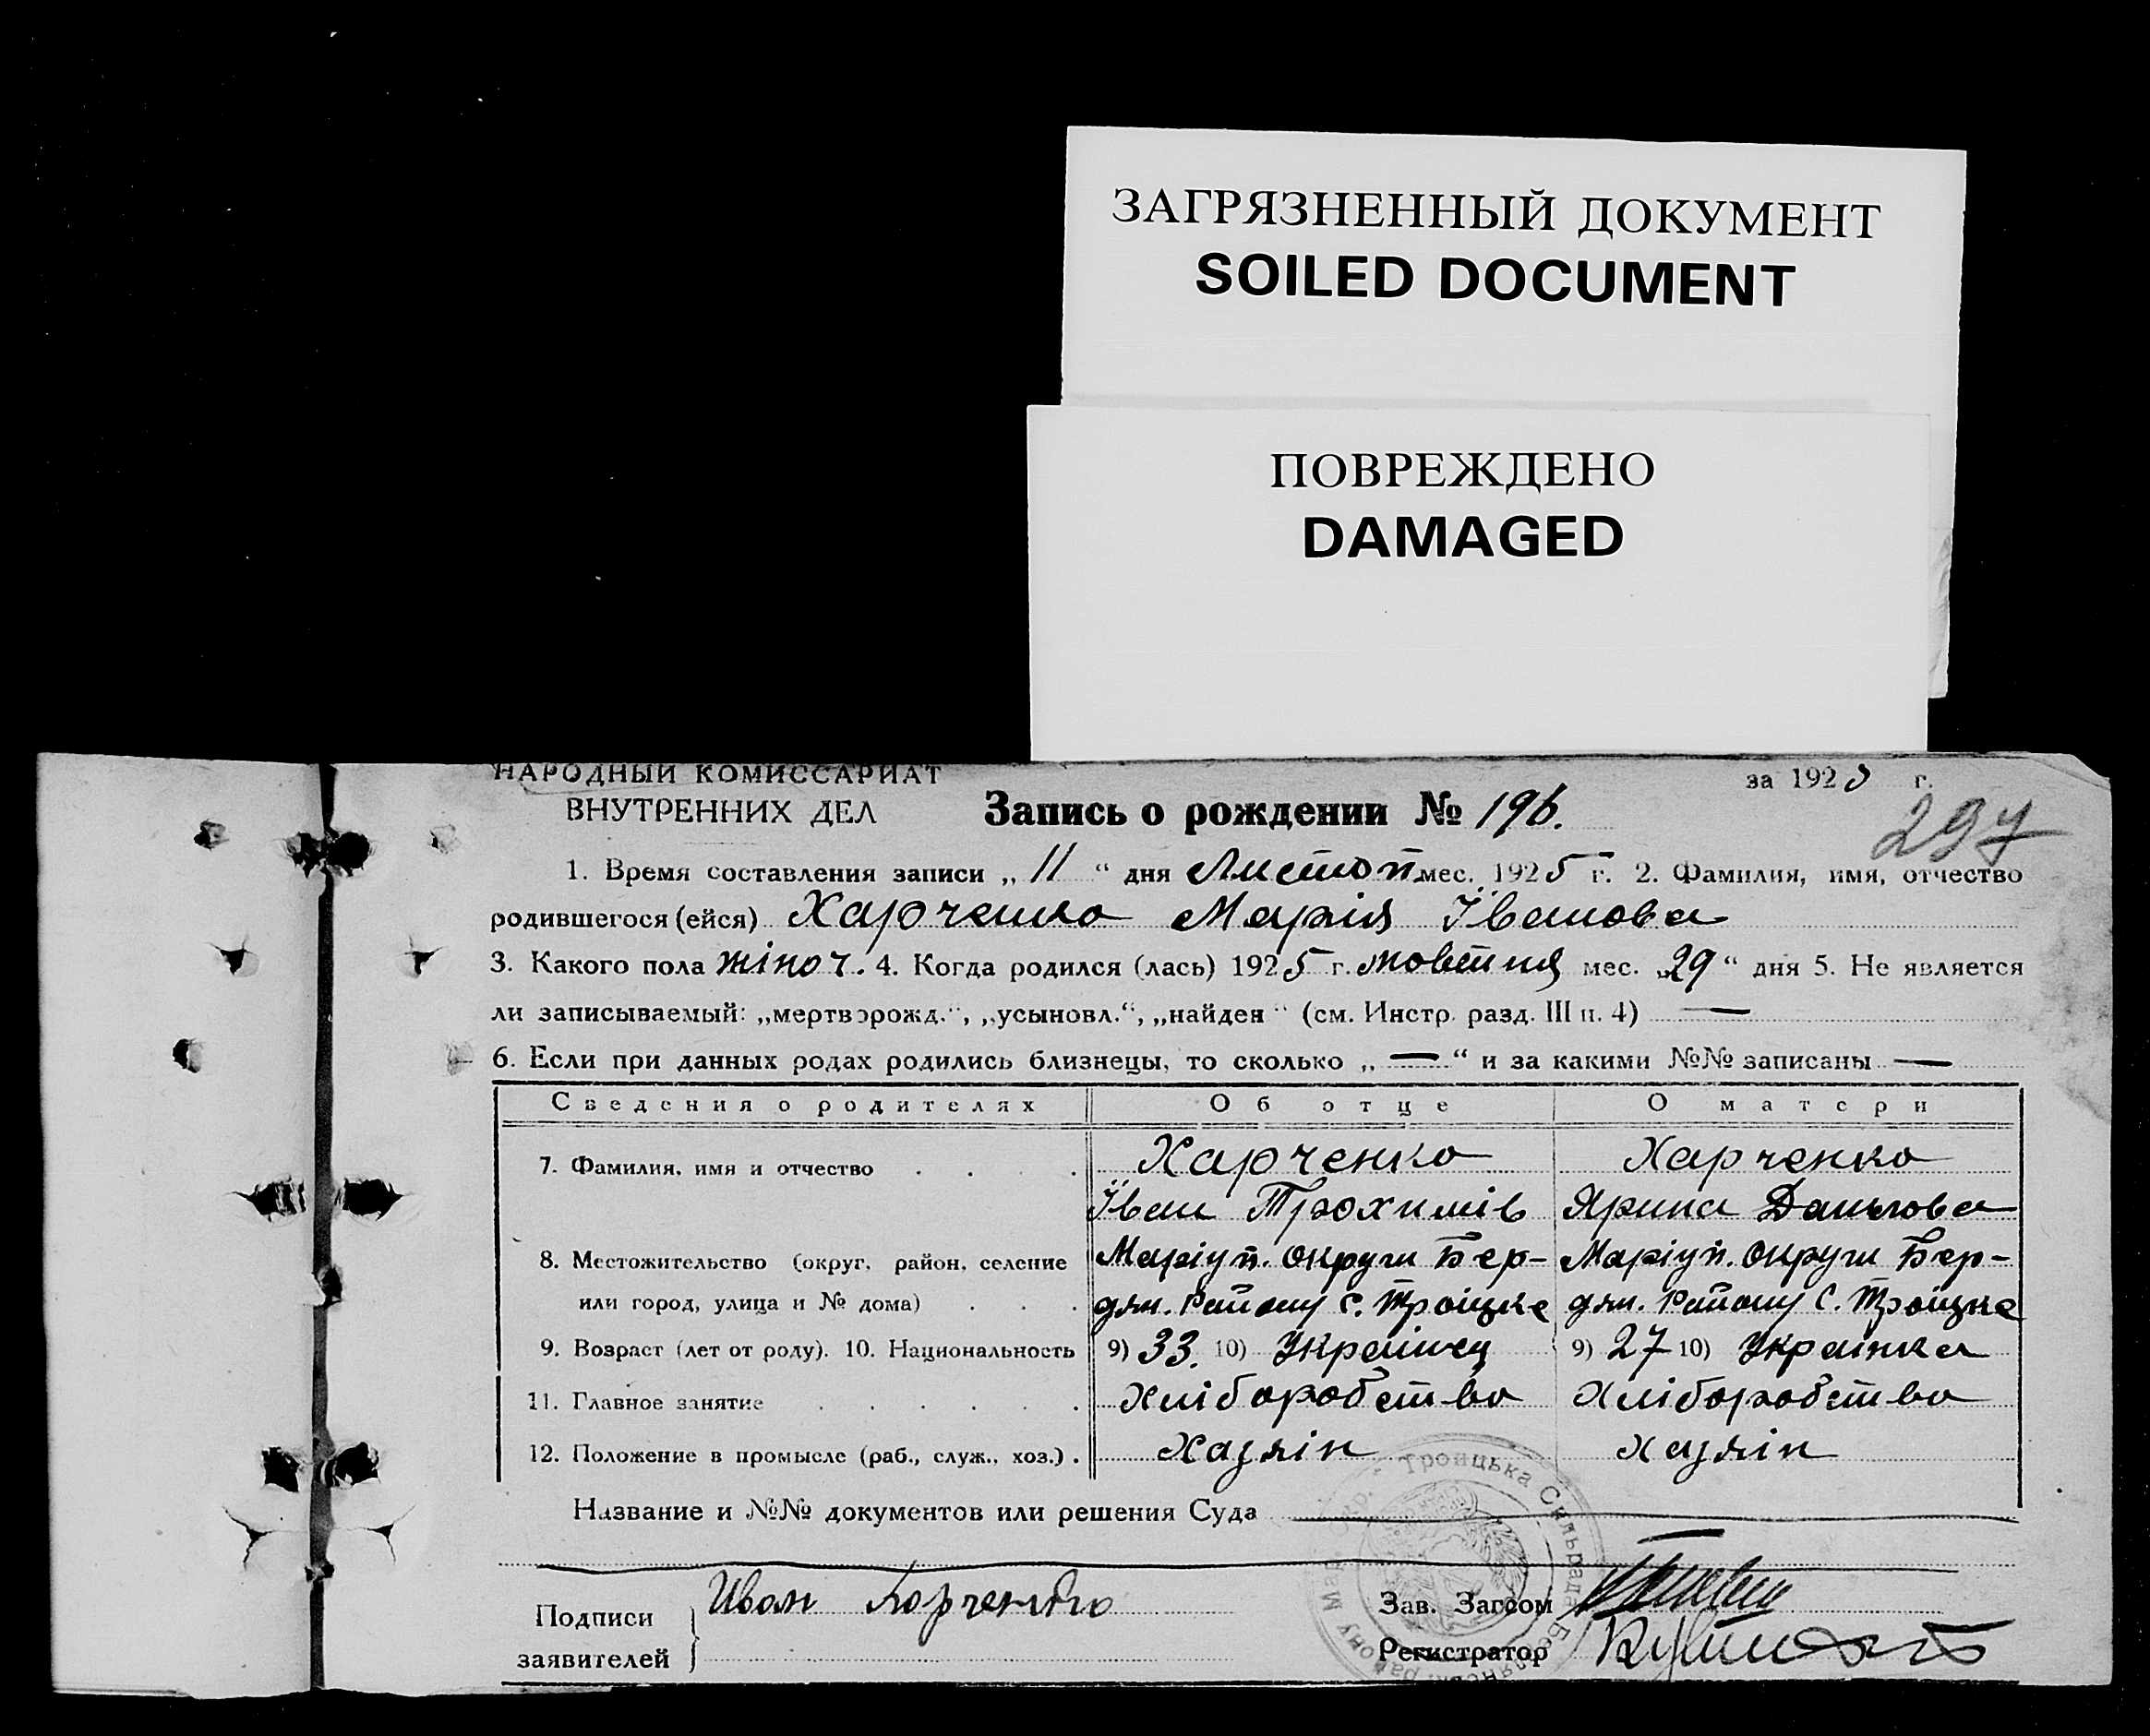 ЗАГРЯЗНЕННЫЙ ДОКУМЕНТ
SOILED DOCUMENT
ПОВРЕЖДЕНО
DAMAGED
НАРОДНЫЙ КОМИССАРИАТ
ВНУТРЕННИХ ДЕЛ
Запись о рождении № 196.
за 1925 г.
297
1. Время составления записи „ 11 “ дня Листоп мес. 1925 г. 2. Фамилия, имя, отчество
родившегося (ейся) Харченко Марія Іванова
3. Какого пола жіноч. 4. Когда родился (лась) 1925 г. жовтня мес. „29“ дня 5. Не является
ли записываемый: „мертворожд.“, „усыновл.“, „найден“ (см. Инстр. разд. III п. 4) —
6. Если при данных родах родились близнецы, то сколько „ — “ и за какими №№ записаны —
Сведения о родителях Об отце О матери
7. Фамилия, имя и отчество . . . Харченко Харченко
Іван Трохимів Ярина Данилова
8. Местожительство (округ, район, селение Маріуп. округи Бер- Маріуп. округи Бер-
или город, улица и № дома) . . . дян. Району С. Троїцке дян. Району С. Троїцке
9. Возраст (лет от роду). 10. Национальность 9) 33. 10) Українец 9) 27 10) Українка
11. Главное занятие . . . . . . Хліборобство Хліборобство
12. Положение в промысле (раб., служ., хоз.) . Хазяін Хазяін
Название и №№ документов или решения Суда
Троицька Сильрада Бердянськ. району Мар. окр.
Подписи
заявителей
Иван Харченко
Зав. Загсом
Регистратор